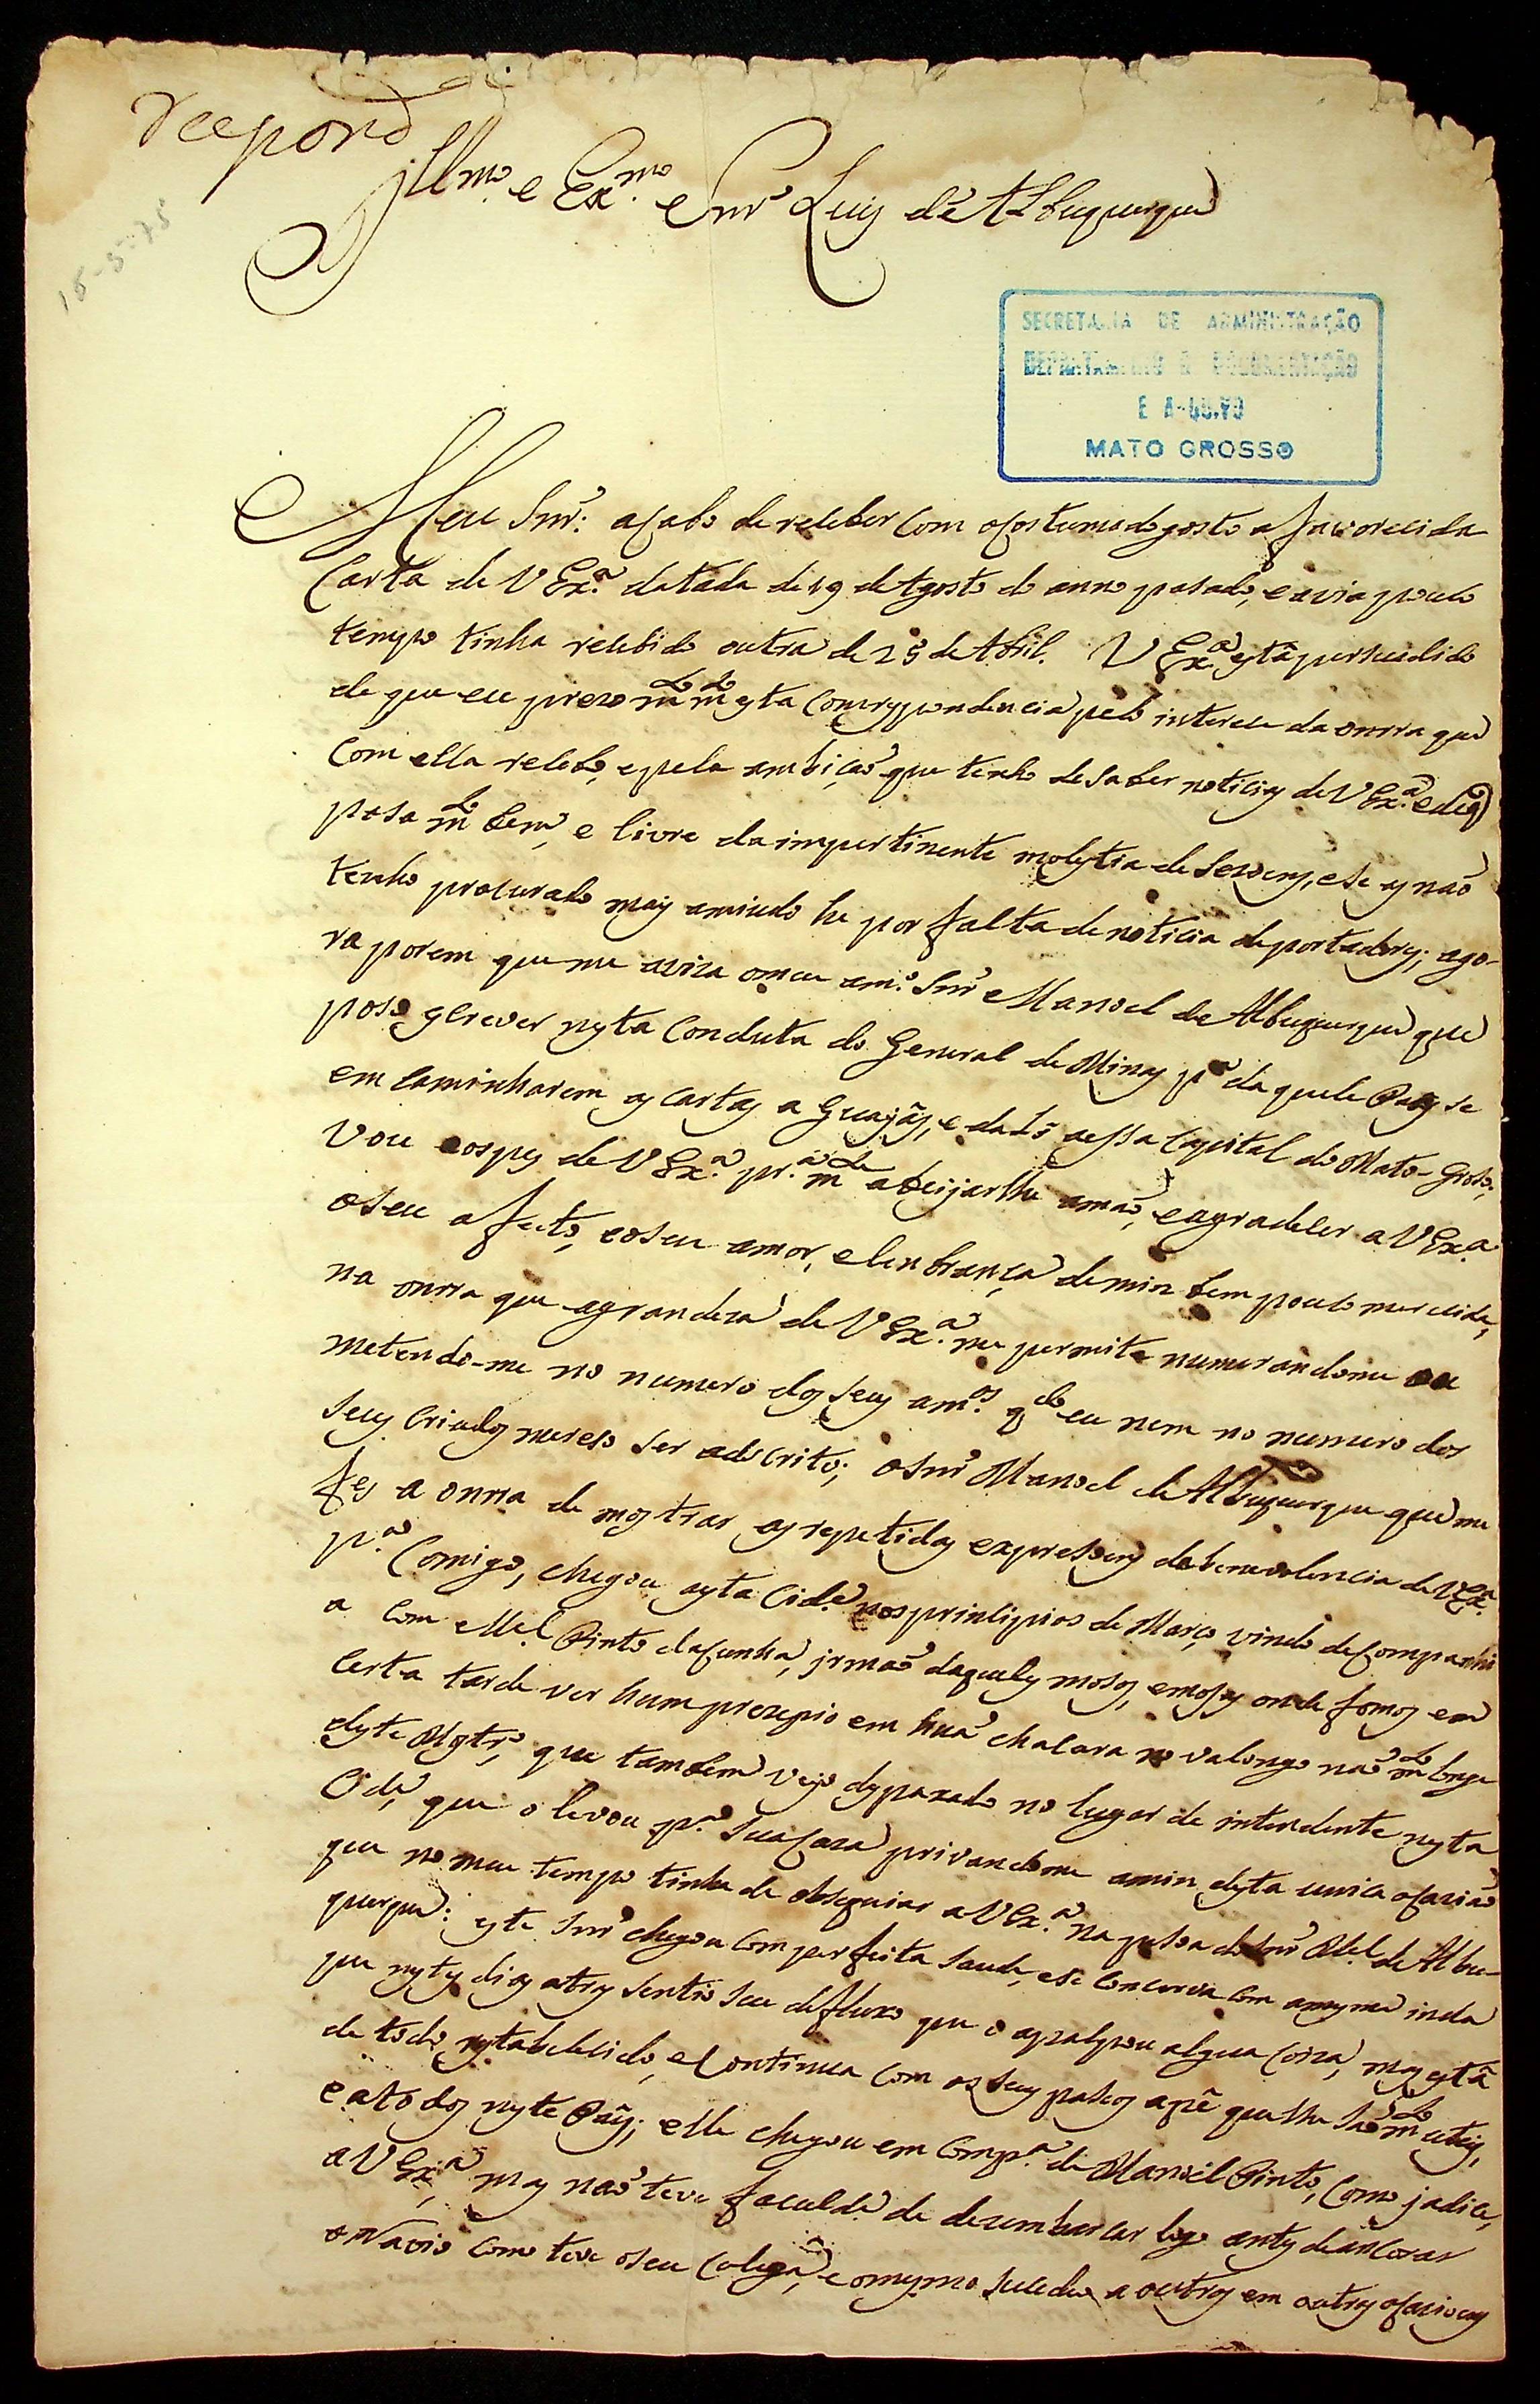 Respond.
Illmo. e Exmo. Snr' Luis de Albuquerque
15-5-75
SECRETARIA DE ADMINISTRAÇÃO
DEPARTAMENTO DE DOCUMENTAÇÃO
E ARQUIVO
MATO GROSSO
Meu Snr': acabo de receber com o costumado gosto a favorecida
Carta de V Exa. datada de 19 de Agosto do anno pasado, e avia pouco
tempo tinha recebido outra de 25 de Abril. V Exa. está persuadido
de que eu prezo mto mto esta Correspondencia pelo interese da onrra que
com ella recebo, e pela ambição que tenho de saber noticias de V Exa. e de q
pasa mto bem, e livre da impertinente molestia de Sezoens, e se as não
tenho procurado mais amiudo he por falta de noticia de portadores; ago-
ra porem que me aviza o meu amo. Snr' Manoel de Albuquerque que
poso escrever nesta Conduta do General de Minas pa. daquele Pais se
encaminharem as cartas a Guayás, e dahi a essa Capital do Mato-Groso;
Vou aos pes de V Exa. pra. mte a beijarlhe a mão, e agradecer a V Exa.
o seu afecto, e o seu amor, e lenbrança de min bem pouco merecida,
na onrra que a grandeza de V Exa. me permite numerandome ou
metendo-me no numero dos seus amos. qdo eu nem no numero dos
seus Criados mereso ser adscrito; o Snr' Manoel de Albuquerque que me
fes a onrra de mostrar as repetidas expresoens de benevolencia de V Exa.
pa. Comigo, chegou a esta Cide. nos principios de Março vindo de companhi
a com Mel. Pinto da Cunha, irmão daqueles mosos, e mosas onde fomos em
certa tarde ver hum prezepio em huã chacara no valongo não mto longe
deste Mostro, que tambem vejo despaxado no lugar de intendente nesta
Cide, que o levou pa. sua Caza privandome a min desta unica ocazião
que no meu tempo tinha de obsequiar a V Exa. na pesoa do Snr' Mel. de Albu-
querque: este Snr' chegou com perfeita saude, e se conserva com a mesma inda
que nestes dias atras sentio seu defluxo que o apalpou algua coiza, mas está
de todo restabelecido, e continua com os seus paseos a pé que lhe são mto uteis,
e a todos neste Pais; elle chegou em Compa. de Manoel Pinto, como ja dice,
a V Exa., mas não teve faculde. de dezembarcar logo antes de ancorar
o Navio como teve o seu Colega, e o mesmo sucedeo a outros em outras ocazioens